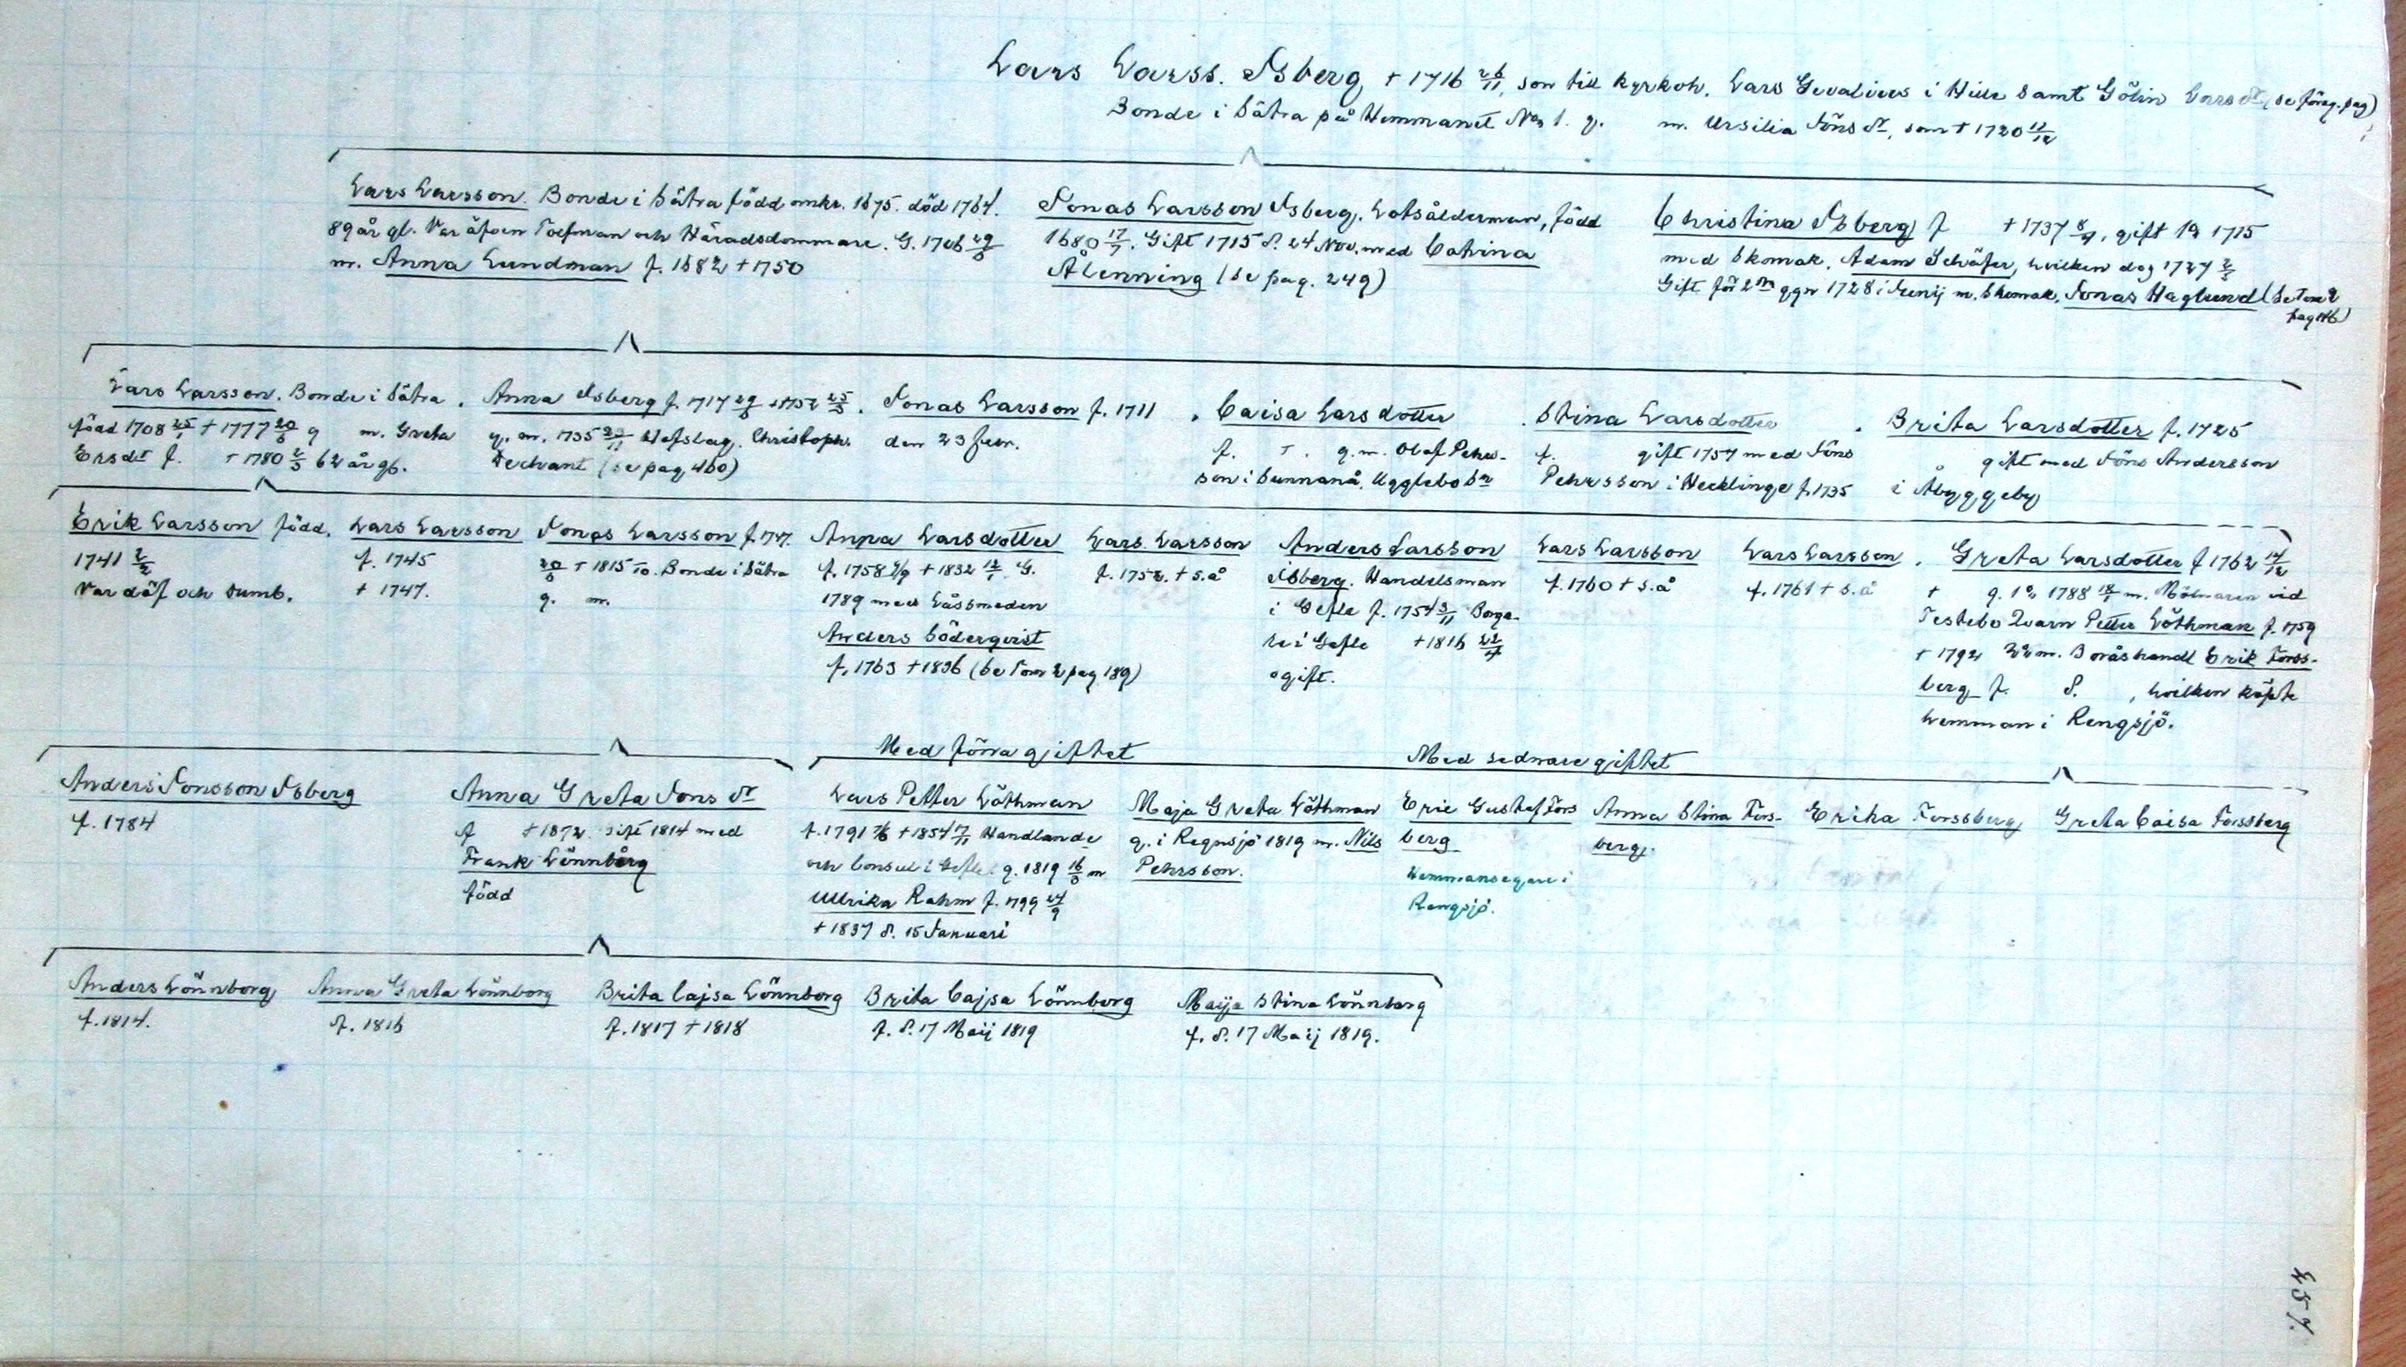 Lars Larss. Isberg, + 1716 26/11, son till kyrkoh. Lars Gevalius i Hille samt Gölin Larsdr (se föreg. pag)
Bonde i Sätra på Hemmanet No 1. g. m. Ursilia Jönsdr, som + 1720 12/12
Lars Larsson. Bonde i Sätra född omkr. 1675. död 1764.
89 år gl. Var äfven Tolfman och Häradsdommare. G. 1706 29/6
m. Anna Lundman f. 1682 + 1750
Jonas Larsson Isberg. Lotsålderman, född
1680 17/7. Gift 1715 d. 24 Nov. med Catrina
Ålenning (se pag. 249)
Christina Isberg f + 1737 8/4, gift 1a 1715
med Skomak. Adam Schäfer, hvilken dog 1727 2/5
Gift för 2dra ggn 1728 i Junij m. Skomak. Jonas Haglund (Se Tom 2
pag 116)
Lars Larsson. Bonde i Sätra.
född 1708 25/1 + 1777 20/6 g m. Greta
Ersdr f. + 1780 2/5 62 år gl.
Anna Isberg f. 1717 29/6 + 1752 25/5.
g. m. 1735 23/11 Hofslag. Christoph.
(se pag 460)
Jonas Larsson f. 1711
den 23 Juni.
Caisa Larsdotter
f. + . g. m. Olof Pehrs-
son i Sunnanå, Ugglebo Sn
Stina Larsdotter
f. gift 1757 med Jöns
Pehrsson i Hecklinge f. 1735
Brita Larsdotter f. 1725
gift med Jöns Andersson
i Åbyggeby
Erik Larsson född.
1741 2/2
Var döf och dumb.
Lars Larsson
f. 1745
+ 1747.
Jonas Larsson f. 1747.
20/6 + 1815 Bonde i Sätra
g. m.
Anna Larsdotter
f. 1758 9/9 + 1832 12/1 G.
1789 med Låssmeden
Anders Söderqvist
f. 1763 + 1836 (Se Tom 2 pag 189)
Lars Larsson
f. 1752. + s.å
Anders Larsson
Isberg. Handelsman
i Gefle f. 1754 3/11 Borga-
re i Gefle + 1816 22/4
ogift.
Lars Larsson
f. 1760 + s.å
Lars Larsson.
f. 1761 + s.å
Greta Larsdotter f 1762 14/12
+ g. 1o 1788 18/1 m. Mölnaren vid
Testebo Qvarn Petter Löthman f. 1759
+ 1792 22 m. Boråshandl Erik Forss-
berg f. d. , hvilken köpte
hemman i Rengsjö.
Med förra giftet
Med sednare giftet
Anders Jonsson Isberg
f. 1784
Anna Greta Jonsdr
f + 1872. Gift 1814 med
Frank Lönnborg
född
Lars Petter Löthman
f. 1791 7/6 + 1854 17/11 Handlande
och Consul i Gefle. g. 1819 16/3 m
Ullrika Rahm f. 1799 24/9
+ 1837 d. 15 Januari
Maja Greta Löthman
g. i Regnsjö 1819 m. Nils
Pehrsson.
Eric Gustaf Fors
berg
Hemmansegare i
Rengsjö.
Anna Stina Fors-
berg.
Erika Forssberg
Greta Caisa Forssberg
Anders Lönnborg
f. 1814.
Anna Greta Lönnborg
f. 1816
Brita Cajsa Lönnborg
f. 1817 + 1818
Brita Cajsa Lönnborg
f. d. 17 Maij 1819
Maija Stina Lönnborg
f. d. 17 Maij 1819.
457.